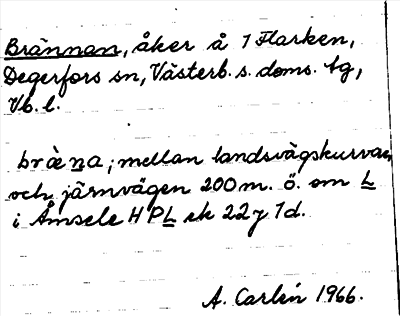 Brännan, åker å 1 Flarken,
Degerfors sn, Västerb. s. doms. tg,
Vb. l.
brὰṇa; mellan landsvägskurvan
och järnvägen 200 m. ö. om L
i Åmsele HPL ek 22 j 1d.
A. Carlén 1966.